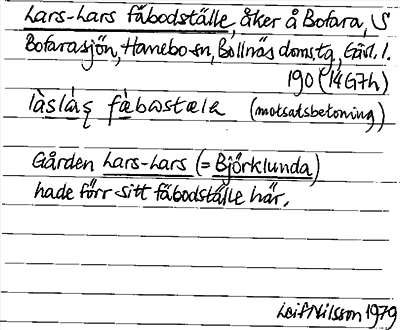 Lars-Lars fäbodställe, åker å Bofara, S
Bofarasjön, Hanebo sn, Bollnäs doms.tg, Gävl. l.
190 (14G7h)
(motsatsbetoning)
Gården Lars-Lars (= Björklunda)
hade förr sitt fäbodställe här.
Leif Nilsson 1979